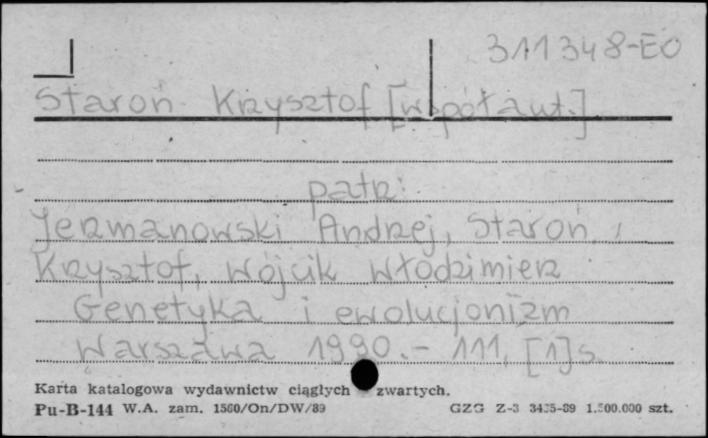 311348-EO
Staroń Krzysztof [współaut.]
patrz:
Jerzmanowski Andrzej, Staroń,
Krzysztof, Wójcik Włodzimierz
Genetyka i ewolucjonizm
Warszawa 1990.- 111, [1] s.
Karta katalogowa wydawnictw ciągłych zwartych.
Pu-B-144 W.A. zam. 1560/On/DW/89 GZG Z-3 3435-89 1.500.000 szt.